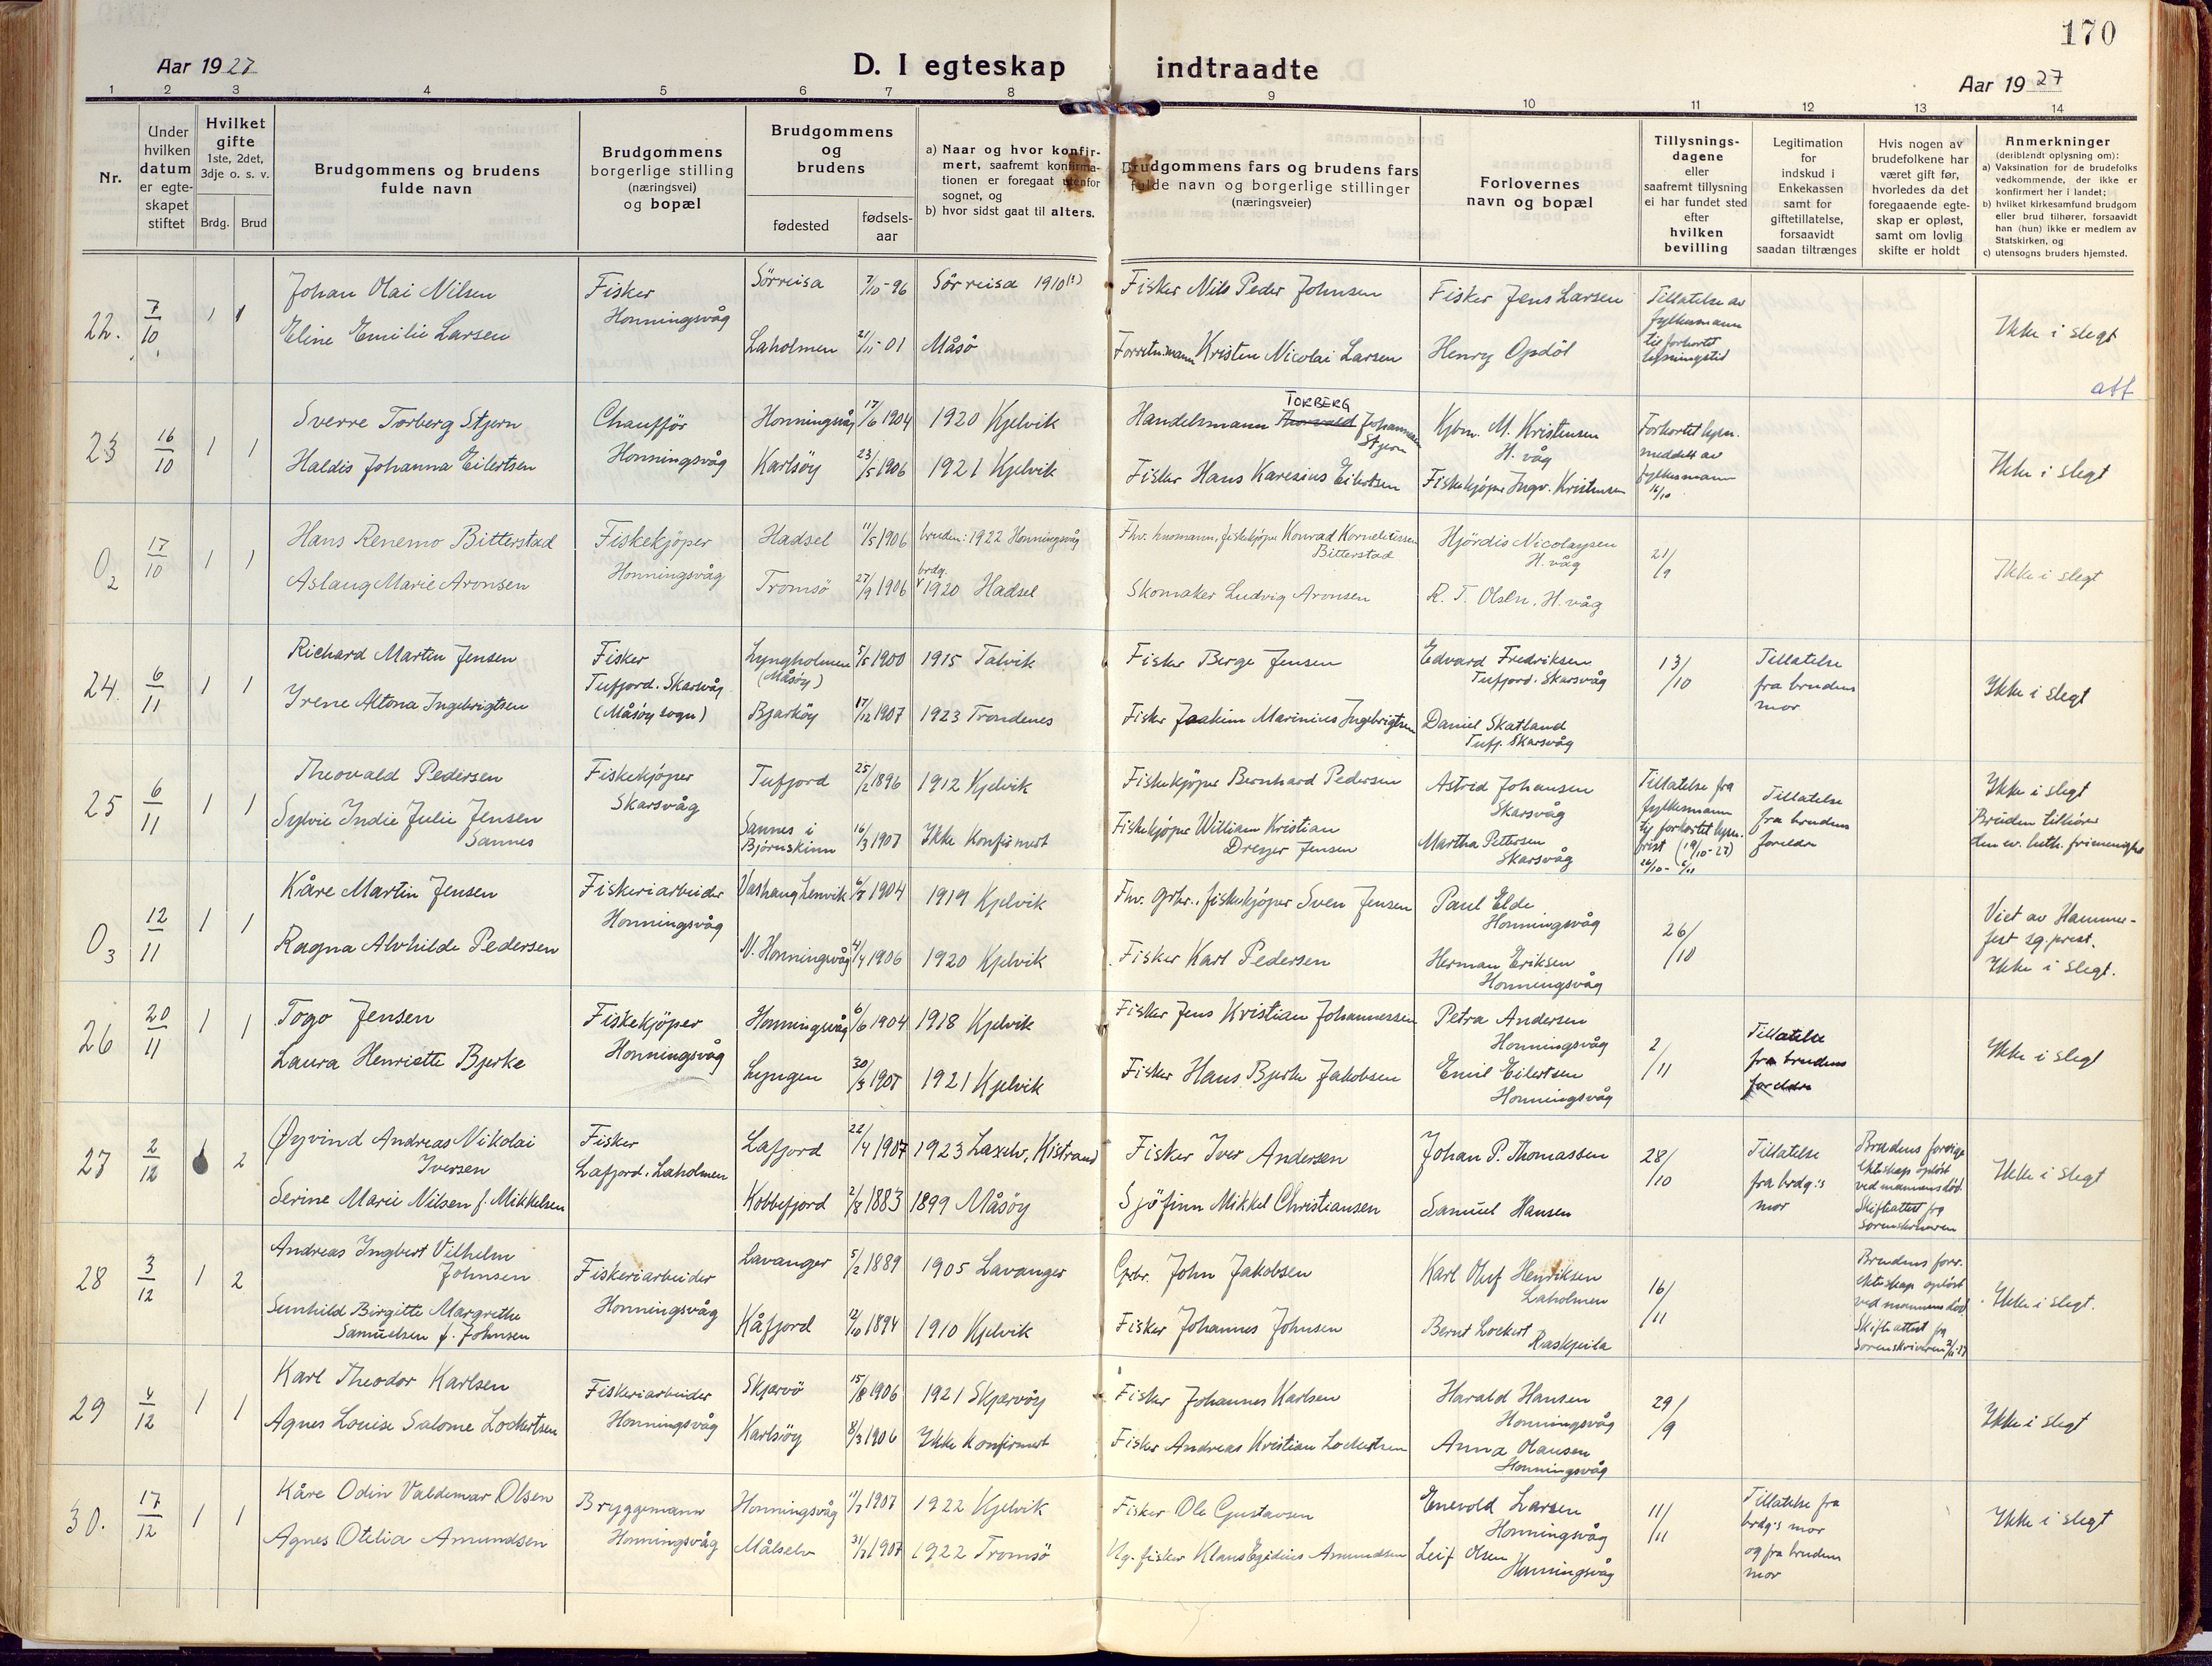 170
Aar 1927
D. I egteskap indtraadte
Aar 1927
1 2 3 4 5 6 7 8 9 10 11 12 13 14
Nr.
Under
hvilken
datum
er egte-
skapet
stiftet
Hvilket
gifte
1ste, 2det,
3dje o. s. v.
Brdg. Brud
Brudgommens og brudens
fulde navn
Brudgommens
borgerlige stilling
(næringsvei)
og bopæl
Brudgommens
og
brudens
fødested
fødsels-
aar
a) Naar og hvor konfir-
mert, saafremt konfirma-
tionen er foregaat utenfor
sognet, og
b) hvor sidst gaat til alters.
Brudgommens fars og brudens fars
fulde navn og borgerlige stillinger
(næringsveier)
Forlovernes
navn og bopæl
Tillysnings-
dagene
eller
saafremt tillysning
ei har fundet sted
efter
hvilken
bevilling
Legitimation
for
indskud i
Enkekassen
samt for
giftetillatelse,
forsaavidt
saadan tiltrænges
Hvis nogen av
brudefolkene har
været gift før,
hvorledes da det
foregaaende egte-
skap er opløst,
samt om lovlig
skifte er holdt
Anmerkninger
(deriblandt oplysning om):
a) Vaksination for de brudefolks
vedkommende, der ikke er
konfirmert her i landet;
b) hvilket kirkesamfund brudgom
eller brud tilhører, forsaavidt
han (hun) ikke er medlem av
Statskirken, og
c) utensogns bruders hjemsted.
22. 7/10 1 1
Johan Olai Nilsen
Eline Emilie Larsen
Fisker
Honningsvåg
Sörreisa 7/10-96 Sörreisa 1910(?)
Laholmen 21/11-01 Måsö
Fisker Nils Peder Johnsen
Forretn.mann Kristen Nicolai Larsen
Fisker Jens Larsen
Henry Opdöl
Tillatelse av
fylkesmann
til forkortet
lysningstid
Ikke i slegt
att
23 16/10 1 1
Sverre Torberg Stjern
Haldis Johanna Eilertsen
Chaufför
Honningsvåg
Honningsvåg 17/6 1904 1920 Kjelvik
Karlsöy 23/5 1906 1921 Kjelvik
TORBERG
Handelsmann Thorvald Johannesen
Stjern
Fisker Hans Karesius Eilertsen
Kjbm. M. Kristensen
H. våg
Fiskekjöper Ingv. Kristensen
Forkortet lysn.
meddelt av
fylkesmann
16/10
Ikke i slegt
O2 17/10 1 1
Hans Renemo Bitterstad
Aslaug Marie Aronsen
Fiskekjöper
Honningsvåg
Hadsel 11/5 1906 bruden: 1922 Honningsvåg
Tromsö 27/9 1906 brdg. 1920 Hadsel
Fhv. husmann, fiskekjöper Konrad Korneliussen
Bitterstad
Skomaker Ludvig Aronsen
Hjördis Nicolaysen
H. våg
R. T. Olsen, H. våg
21/9
Ikke i slegt
24. 6/11 1 1
Richard Martin Jensen
Irene Altona Ingebrigtsen
Fisker
Tufjord. Skarsvåg
(Måsöy sogn)
Lyngholmen 5/5 1900 1915 Talvik
(Måsöy)
Bjarköy 17/12 1907 1923 Trondenes
Fisker Berge Jensen
Fisker Joakim Marinius Ingebrigtsen
Edvard Fredriksen
Tufjord. Skarsvåg
Daniel Skatland
Tufj. Skarsvåg
13/10
Tillatelse
fra brudens
mor
Ikke i slegt
25 6/11 1 1
Theovald Pedersen
Sylvie Indie Julie Jensen
Sannes
Fiskekjöper
Skarsvåg
Tufjord 25/2 1896 1912 Kjelvik
Sannes i
Björnskinn 16/3 1907 Ikke konfirmert
Fiskekjöper Bernhard Pedersen
Fiskekjöper William Kristian
Dreyer Jensen
Astrid Johansen
Skarsvåg
Martha Pettersen
Skarsvåg
Tillatelse fra
fylkesmann
til forkortet lysn.
frist (19/10-27)
26/10 - 6/11
Tillatelse
fra brudens
foreldre
Ikke i slegt
Bruden tilhörer
den ev. luth. frimenighet
O3 12/11 1 1
Kåre Martin Jensen
Ragna Alvhilde Pedersen
Fiskeriarbeider
Honningsvåg
Vashaug Lenvik 6/7 1904 1919 Kjelvik
N. Honningsvåg 4/4 1906 1920 Kjelvik
Fhv. grbr., fiskekjöper Sven Jensen
Fisker Karl Pedersen
Paul Elde
Honningsvåg
Herman Eriksen
Honningsvåg
26/10
Viet av Hammer-
fest sg.prest.
Ikke i slegt.
26 20/11 1 1
Togo Jensen
Laura Henriette Bjerke
Fiskekjöper
Honningsvåg
Honningsvåg 6/6 1904 1918 Kjelvik
Lyngen 30/3 1907 1921 Kjelvik
Fisker Jens Kristian Johannessen
Fisker Hans Bjerke Jakobsen
Petra Andersen
Honningsvåg
Emil Eilertsen
Honningsvåg
2/11
Tillatelse
fra brudens
foreldre
Ikke i slegt
27 2/12 2
Øyvind Andreas Nikolai
Iversen
Serine Marie Nilsen f. Mikkelsen
Fisker
Lafjord. Laholmen
Lafjord 22/4 1907 1923 Laxelv, Kistrand
Kobbefjord 2/8 1883 1899 Måsöy
Fisker Iver Andersen
Sjöfinn Mikkel Christiansen
Johan P. Thomassen
Samuel Hansen
28/10
Tillatelse
fra brdg.:s
mor
Brudens forrige
ekteskap oplöst
ved mannens död.
Skifteattest fra
sorenskriveren
Ikke i slegt
28 3/12 1 2
Andreas Ingbert Vilhelm
Johnsen
Sunhild Birgitte Margrethe
Samuelsen f. Johnsen
Fiskeriarbeider
Honningsvåg
Lavanger 5/2 1889 1905 Lavanger
Kåfjord 12/10 1894 1910 Kjelvik
Grbr. John Jakobsen
Fisker Johannes Johnsen
Karl Oluf Henriksen
Laholmen
Bernt Lockert
Raskjeila
16/11
Brudens forr.
ekteskap oplöst
ved mannens död.
Skifteattest fra
sorenskriveren 2/11-27
Ikke i slegt.
29 4/12 1 1
Karl Theodor Karlsen
Agnes Louise Salome Lockertsen
Fiskeriarbeider
Honningsvåg
Skjervö 15/8 1906 1921 Skjervöy
Karlsöy 8/3 1906 Ikke konfirmert
Fisker Johannes Karlsen
Fisker Andreas Kristian Lockertsen
Harald Hansen
Honningsvåg
Anna Olausen
Honningsvåg
29/9
Ikke i slegt
30. 17/12 1 1
Kåre Odin Valdemar Olsen
Agnes Otelia Amundsen
Bryggemann
Honningsvåg
Honningsvåg 11/7 1907 1922 Kjelvik
Målselv 31/7 1907 1922 Tromsö
Fisker Ole Gustavsen
Ug. fisker Klaus Egidius Amundsen
Enevold Larsen
Honningsvåg
Leif Olsen
Honningsvåg
11/11
Tillatelse fra
brdg:s mor
og fra brudens
mor
Ikke i slegt